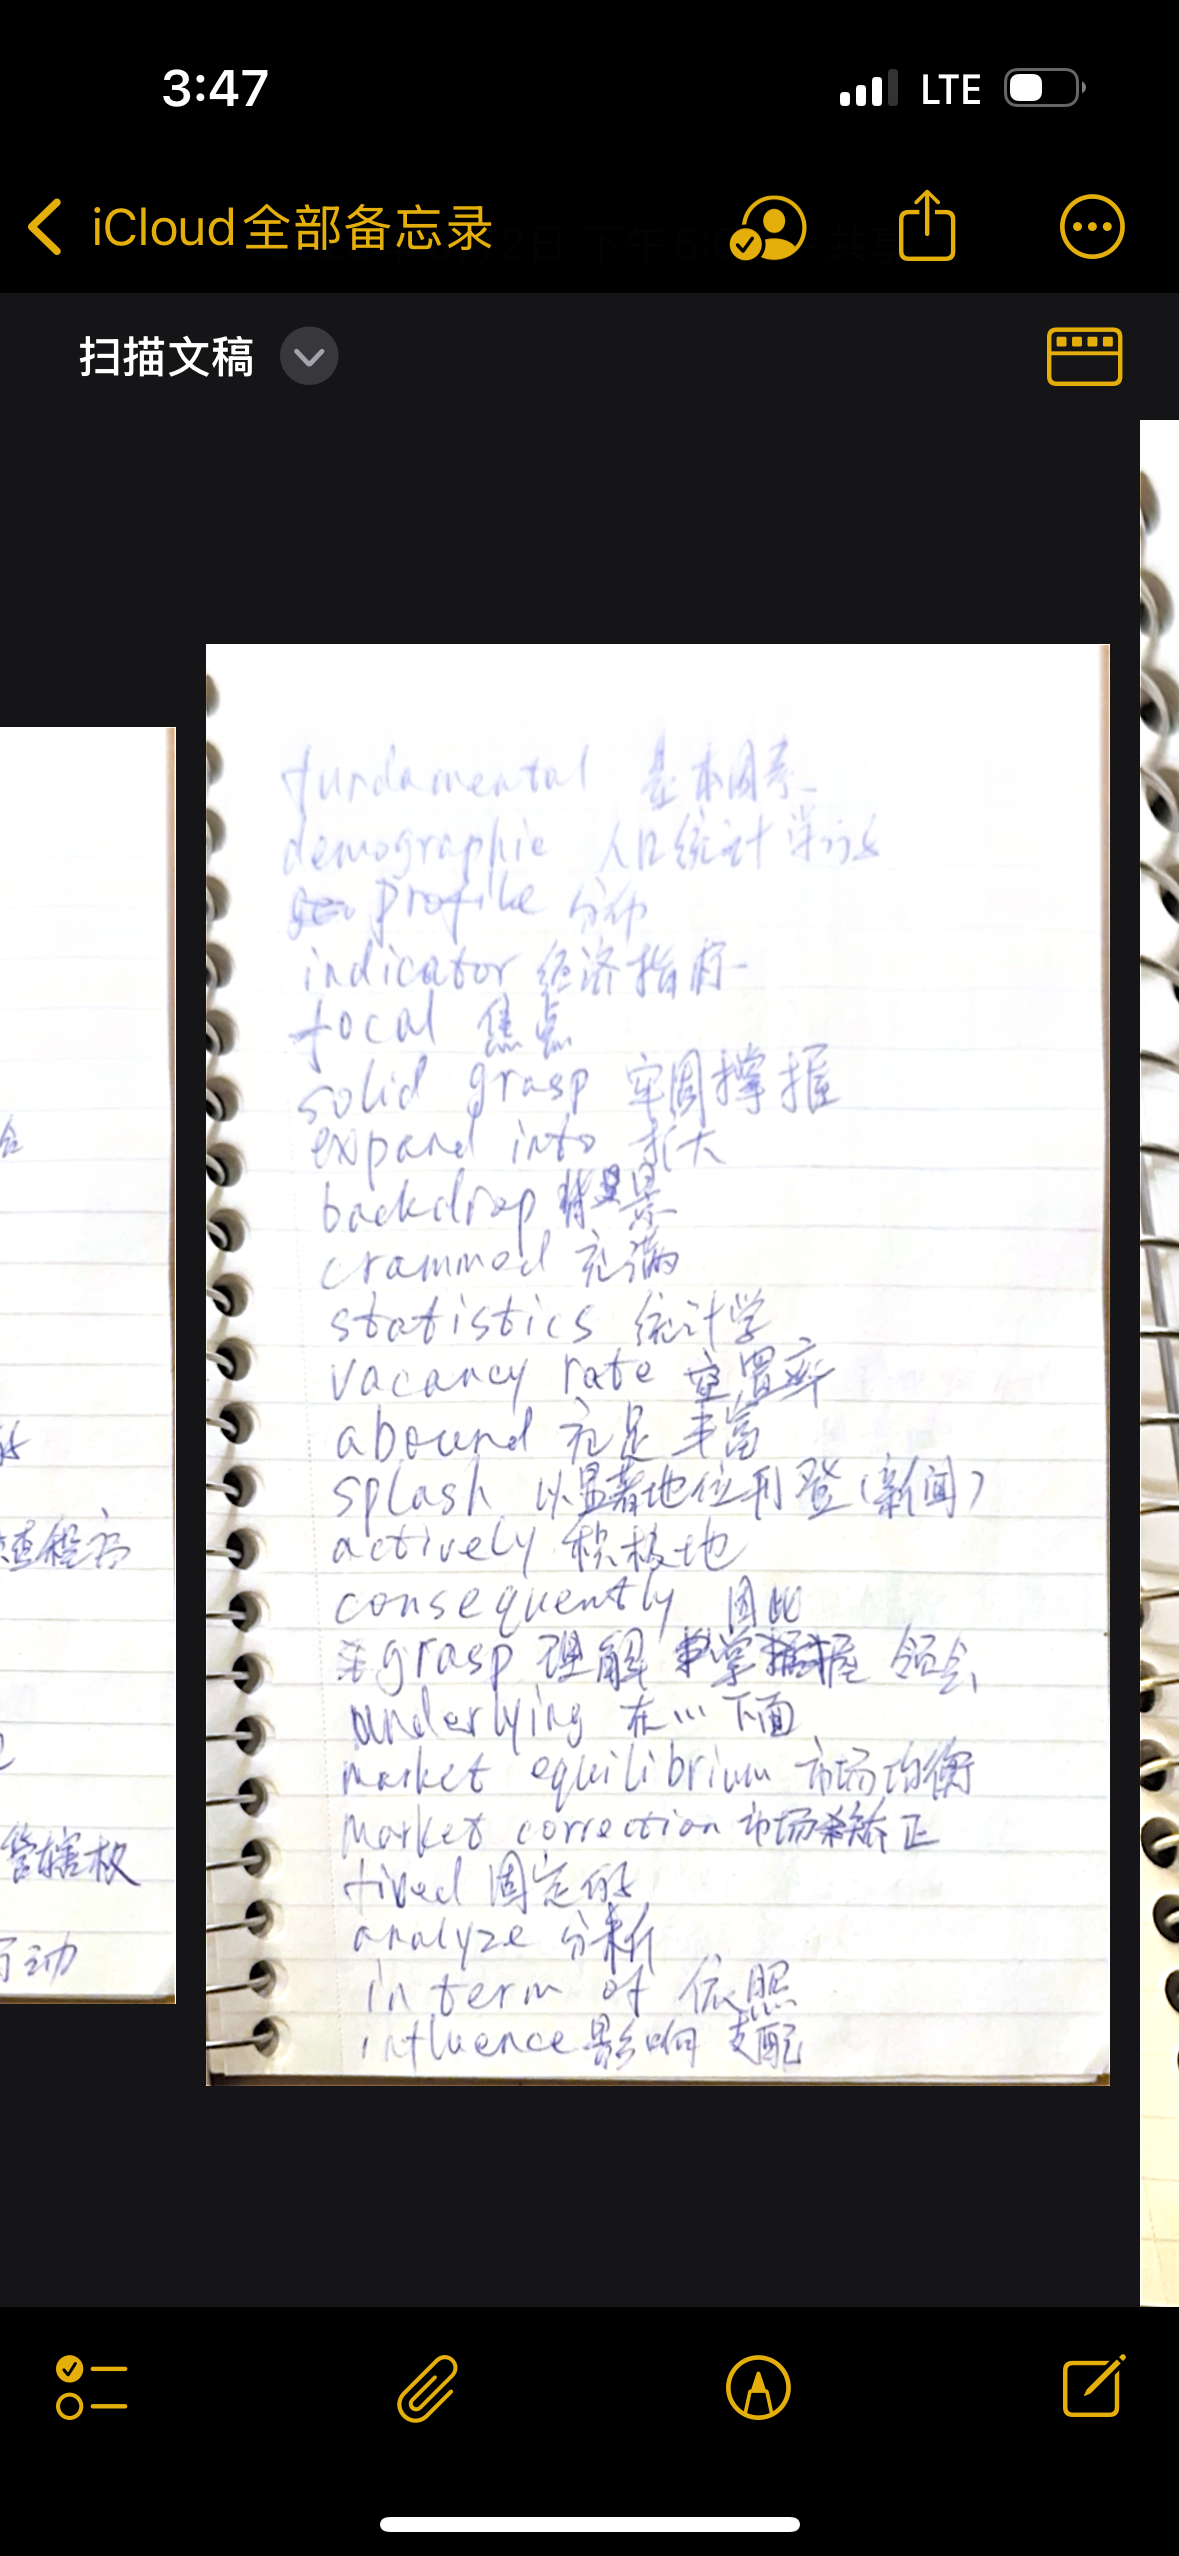 3:47 LTE
iCloud全部备忘录
扫描文稿
fundamental 基本因素
demographic 人口统计学的
profile 分布
indicator 经济指标
focal 焦点
solid grasp 牢固掌握
expand into 扩大
backdrop 背景
crammed 充满
statistics 统计学
vacancy rate 空置率
abound 充足 丰富
splash 以显著地位刊登(新闻)
actively 积极地
consequently 因此
grasp 理解 掌握 领会
underlying 在...下面
market equilibrium 市场均衡
market correction 市场矫正
fixed 固定的
analyze 分析
in term of 依照
influence 影响 支配
管辖权
行动